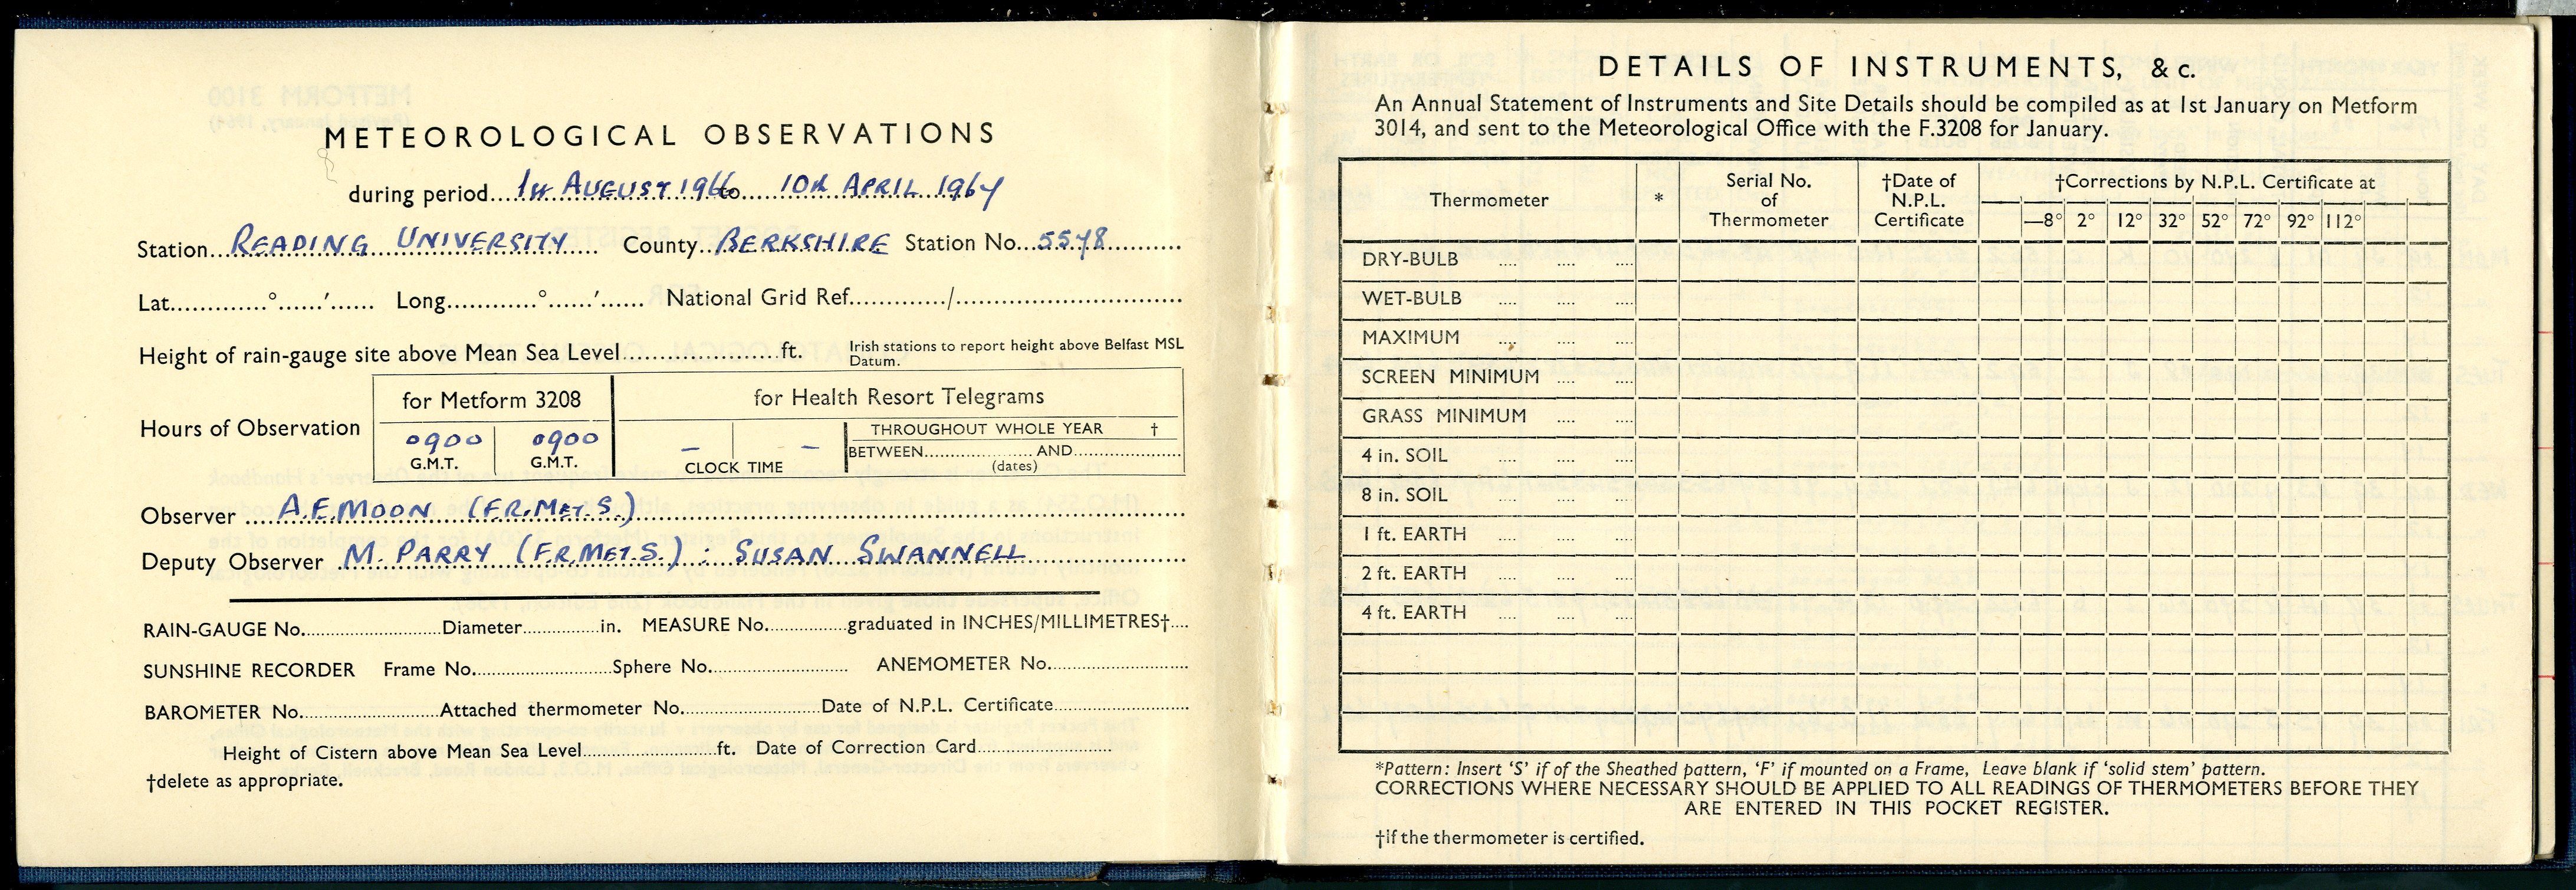 METEOROLOGICAL OBSERVATIONS
during period...1st AUGUST 1966 to...10th APRIL 1967
Station...READING UNIVERSITY... County...BERKSHIRE Station No...5578...
Lat............°......′...... Long............°......′...... National Grid Ref............/............
Height of rain-gauge site above Mean Sea Level............ft. Irish stations to report height above Belfast MSL Datum.
Hours of Observation
for Metform 3208
for Health Resort Telegrams
0900 G.M.T.
0900 G.M.T.
– –
CLOCK TIME
THROUGHOUT WHOLE YEAR †
BETWEEN............AND............
(dates)
Observer ....A.F.MOON (F.R.MET.S.)....
Deputy Observer ....M. PARRY (F.R.MET.S.) : SUSAN SWANNELL....
RAIN-GAUGE No............Diameter............in. MEASURE No............graduated in INCHES/MILLIMETRES†....
SUNSHINE RECORDER Frame No............Sphere No............ ANEMOMETER No............
BAROMETER No............Attached thermometer No............Date of N.P.L. Certificate............
Height of Cistern above Mean Sea Level............ft. Date of Correction Card............
†delete as appropriate.
DETAILS OF INSTRUMENTS, &c.
An Annual Statement of Instruments and Site Details should be compiled as at 1st January on Metform
3014, and sent to the Meteorological Office with the F.3208 for January.
Thermometer * Serial No. of Thermometer †Date of N.P.L. Certificate †Corrections by N.P.L. Certificate at
—8° 2° 12° 32° 52° 72° 92° 112°
DRY-BULB .... .... ....
WET-BULB .... .... ....
MAXIMUM .... .... ....
SCREEN MINIMUM .... ....
GRASS MINIMUM .... ....
4 in. SOIL .... .... ....
8 in. SOIL .... .... ....
1 ft. EARTH .... .... ....
2 ft. EARTH .... .... ....
4 ft. EARTH .... .... ....
*Pattern: Insert ‘S’ if of the Sheathed pattern, ‘F’ if mounted on a Frame, Leave blank if ‘solid stem’ pattern.
CORRECTIONS WHERE NECESSARY SHOULD BE APPLIED TO ALL READINGS OF THERMOMETERS BEFORE THEY
ARE ENTERED IN THIS POCKET REGISTER.
†if the thermometer is certified.